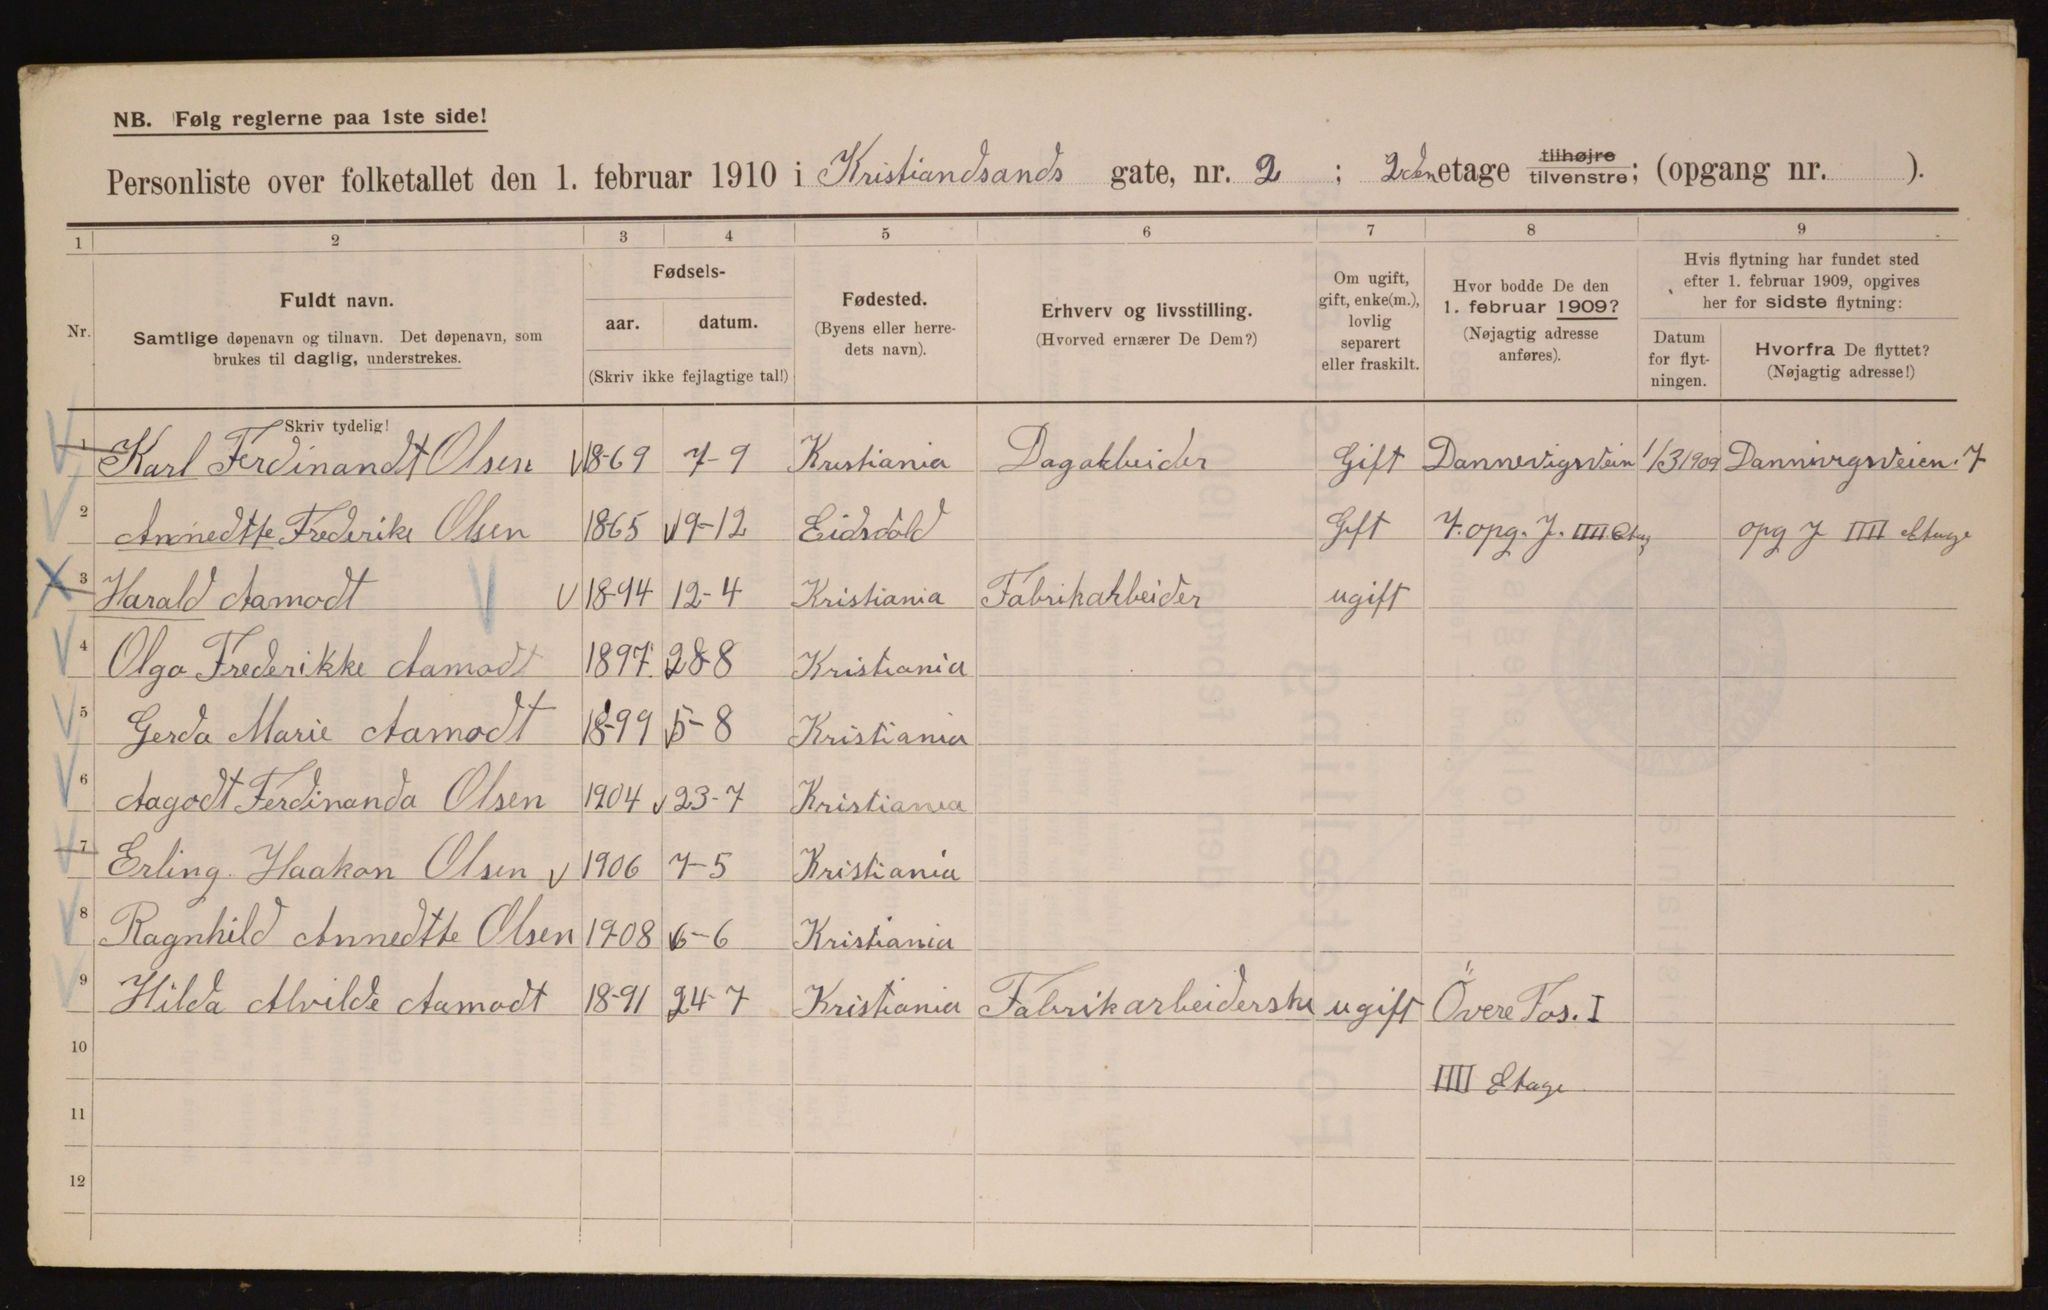 NB. Følg reglerne paa 1ste side!
Personliste over folketallet den 1. februar 1910 i Kristiandsands gate, nr. 2 ; 2den etage tilhøjre tilvenstre; (opgang nr. ).
1 2 3 4 5 6 7 8 9
Nr.
Fuldt navn.
Samtlige døpenavn og tilnavn. Det døpenavn, som
brukes til daglig, understrekes.
Fødsels-
aar. datum.
(Skriv ikke fejlagtige tal!)
Fødested.
(Byens eller herre-
dets navn).
Erhverv og livsstilling.
(Hvorved ernærer De Dem?)
Om ugift,
gift, enke(m.),
lovlig
separert
eller fraskilt.
Hvor bodde De den
1. februar 1909?
(Nøjagtig adresse
anføres).
Hvis flytning har fundet sted
efter 1. februar 1909, opgives
her for sidste flytning:
Datum
for flyt-
ningen.
Hvorfra De flyttet?
(Nøjagtig adresse!)
Skriv tydelig!
1 Karl Ferdinandt Olsen 1869 7-9 Kristiania Dagarbeider Gift Dannevigsvein 1/3 1909 Dannivgsveien. 7
2 Annedtte Frederike Olsen 1865 9-12 Eidsdold Gift 7. opg. J. IIII Etag opg J IIII Etage
3 Harald Aamodt 1894 12-4 Kristiania Fabrikarbeider ugift
4 Olga Frederikke Aamodt 1897 28-8 Kristiania
5 Gerda Marie Aamodt 1899 5-8 Kristiania
6 Aagodt Ferdinanda Olsen 1904 23-7 Kristiania
7 Erling Haakon Olsen 1906 7-5 Kristiania
8 Ragnhild Annedtte Olsen 1908 6-6 Kristiania
9 Hilda Alvilde Aamodt 1891 24-7 Kristiania Fabrikarbeiderske ugift Övere Fos. I
10 IIII Etage
11
12